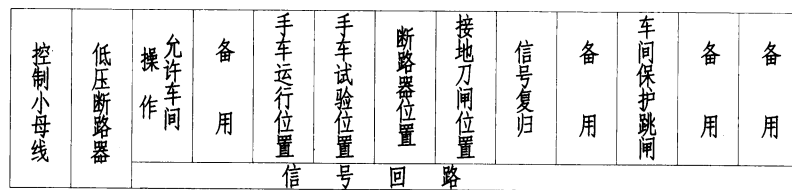 控制小母线
低压断路器
允许车间
操作
备用
手车运行位置
手车试验位置
断路器位置
接地刀闸位置
信号复归
备用
车间保护跳闸
备用
备用
信号回路